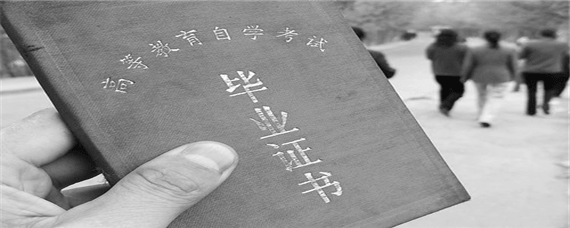 高等教育自学考试
毕业证书